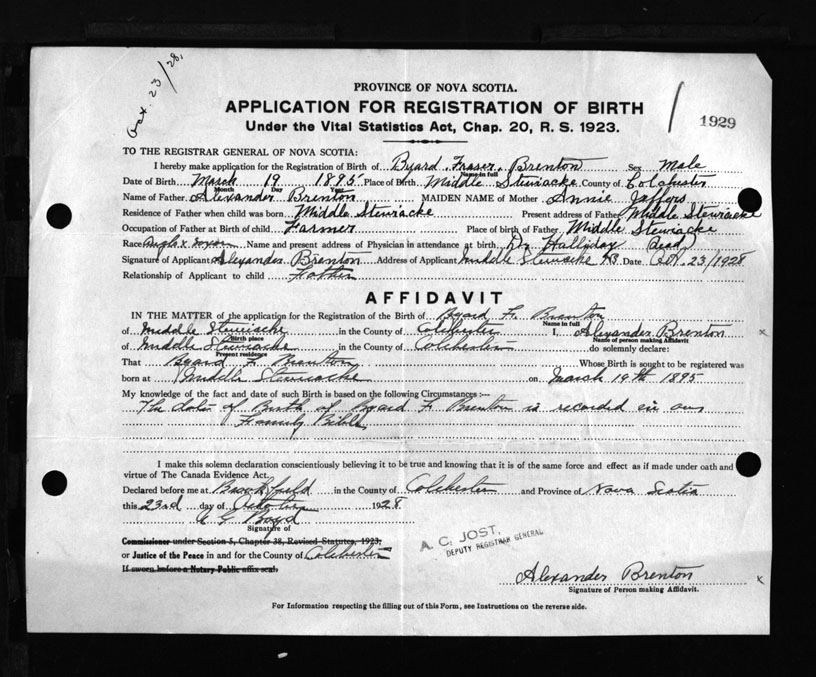 Oct. 23/28.
PROVINCE OF NOVA SCOTIA.
APPLICATION FOR REGISTRATION OF BIRTH
Under the Vital Statistics Act, Chap. 20, R. S. 1923.
1929
TO THE REGISTRAR GENERAL OF NOVA SCOTIA:
I hereby make application for the Registration of Birth of Byard Fraser Brenton Sex Male
Name in full
Date of Birth March 19 1895 Place of Birth Middle Stewiacke County of Colchester
Month Day Year
Name of Father Alexander Brenton MAIDEN NAME of Mother Annie Jaffers
Residence of Father when child was born Middle Stewiacke Present address of Father Middle Stewiacke
Occupation of Father at Birth of child Farmer Place of birth of Father Middle Stewiacke
Race Name and present address of Physician in attendance at birth Dr Halliday (dead)
Signature of Applicant Alexander Brenton Address of Applicant Middle Stewiacke NS Date Oct. 23/1928
Relationship of Applicant to child Father
AFFIDAVIT
IN THE MATTER of the application for the Registration of the Birth of Byard F. Brenton
Name in full
of Middle Stewiacke in the County of Colchester I, Alexander Brenton
Birth place Name of person making Affidavit
of Middle Stewiacke in the County of Colchester do solemnly declare:
Present residence
That Byard F. Brenton Whose Birth is sought to be registered was
born at Middle Stewiacke on March 19th 1895
My knowledge of the fact and date of such Birth is based on the following Circumstances :—
The date of Birth of Byard F. Brenton is recorded in our
Family Bible
I make this solemn declaration conscientiously believing it to be true and knowing that it is of the same force and effect as if made under oath and
virtue of The Canada Evidence Act.
Declared before me at Brookfield in the County of Colchester and Province of Nova Scotia
this 23rd day of October 1928
A G Boyd
Signature of
Commissioner under Section 5, Chapter 38, Revised Statutes, 1923,
or Justice of the Peace in and for the County of Colchester
If sworn before a Notary Public affix seal.
A. C. JOST,
DEPUTY REGISTRAR GENERAL
Alexander Brenton
Signature of Person making Affidavit.
For Information respecting the filling out of this Form, see Instructions on the reverse side.